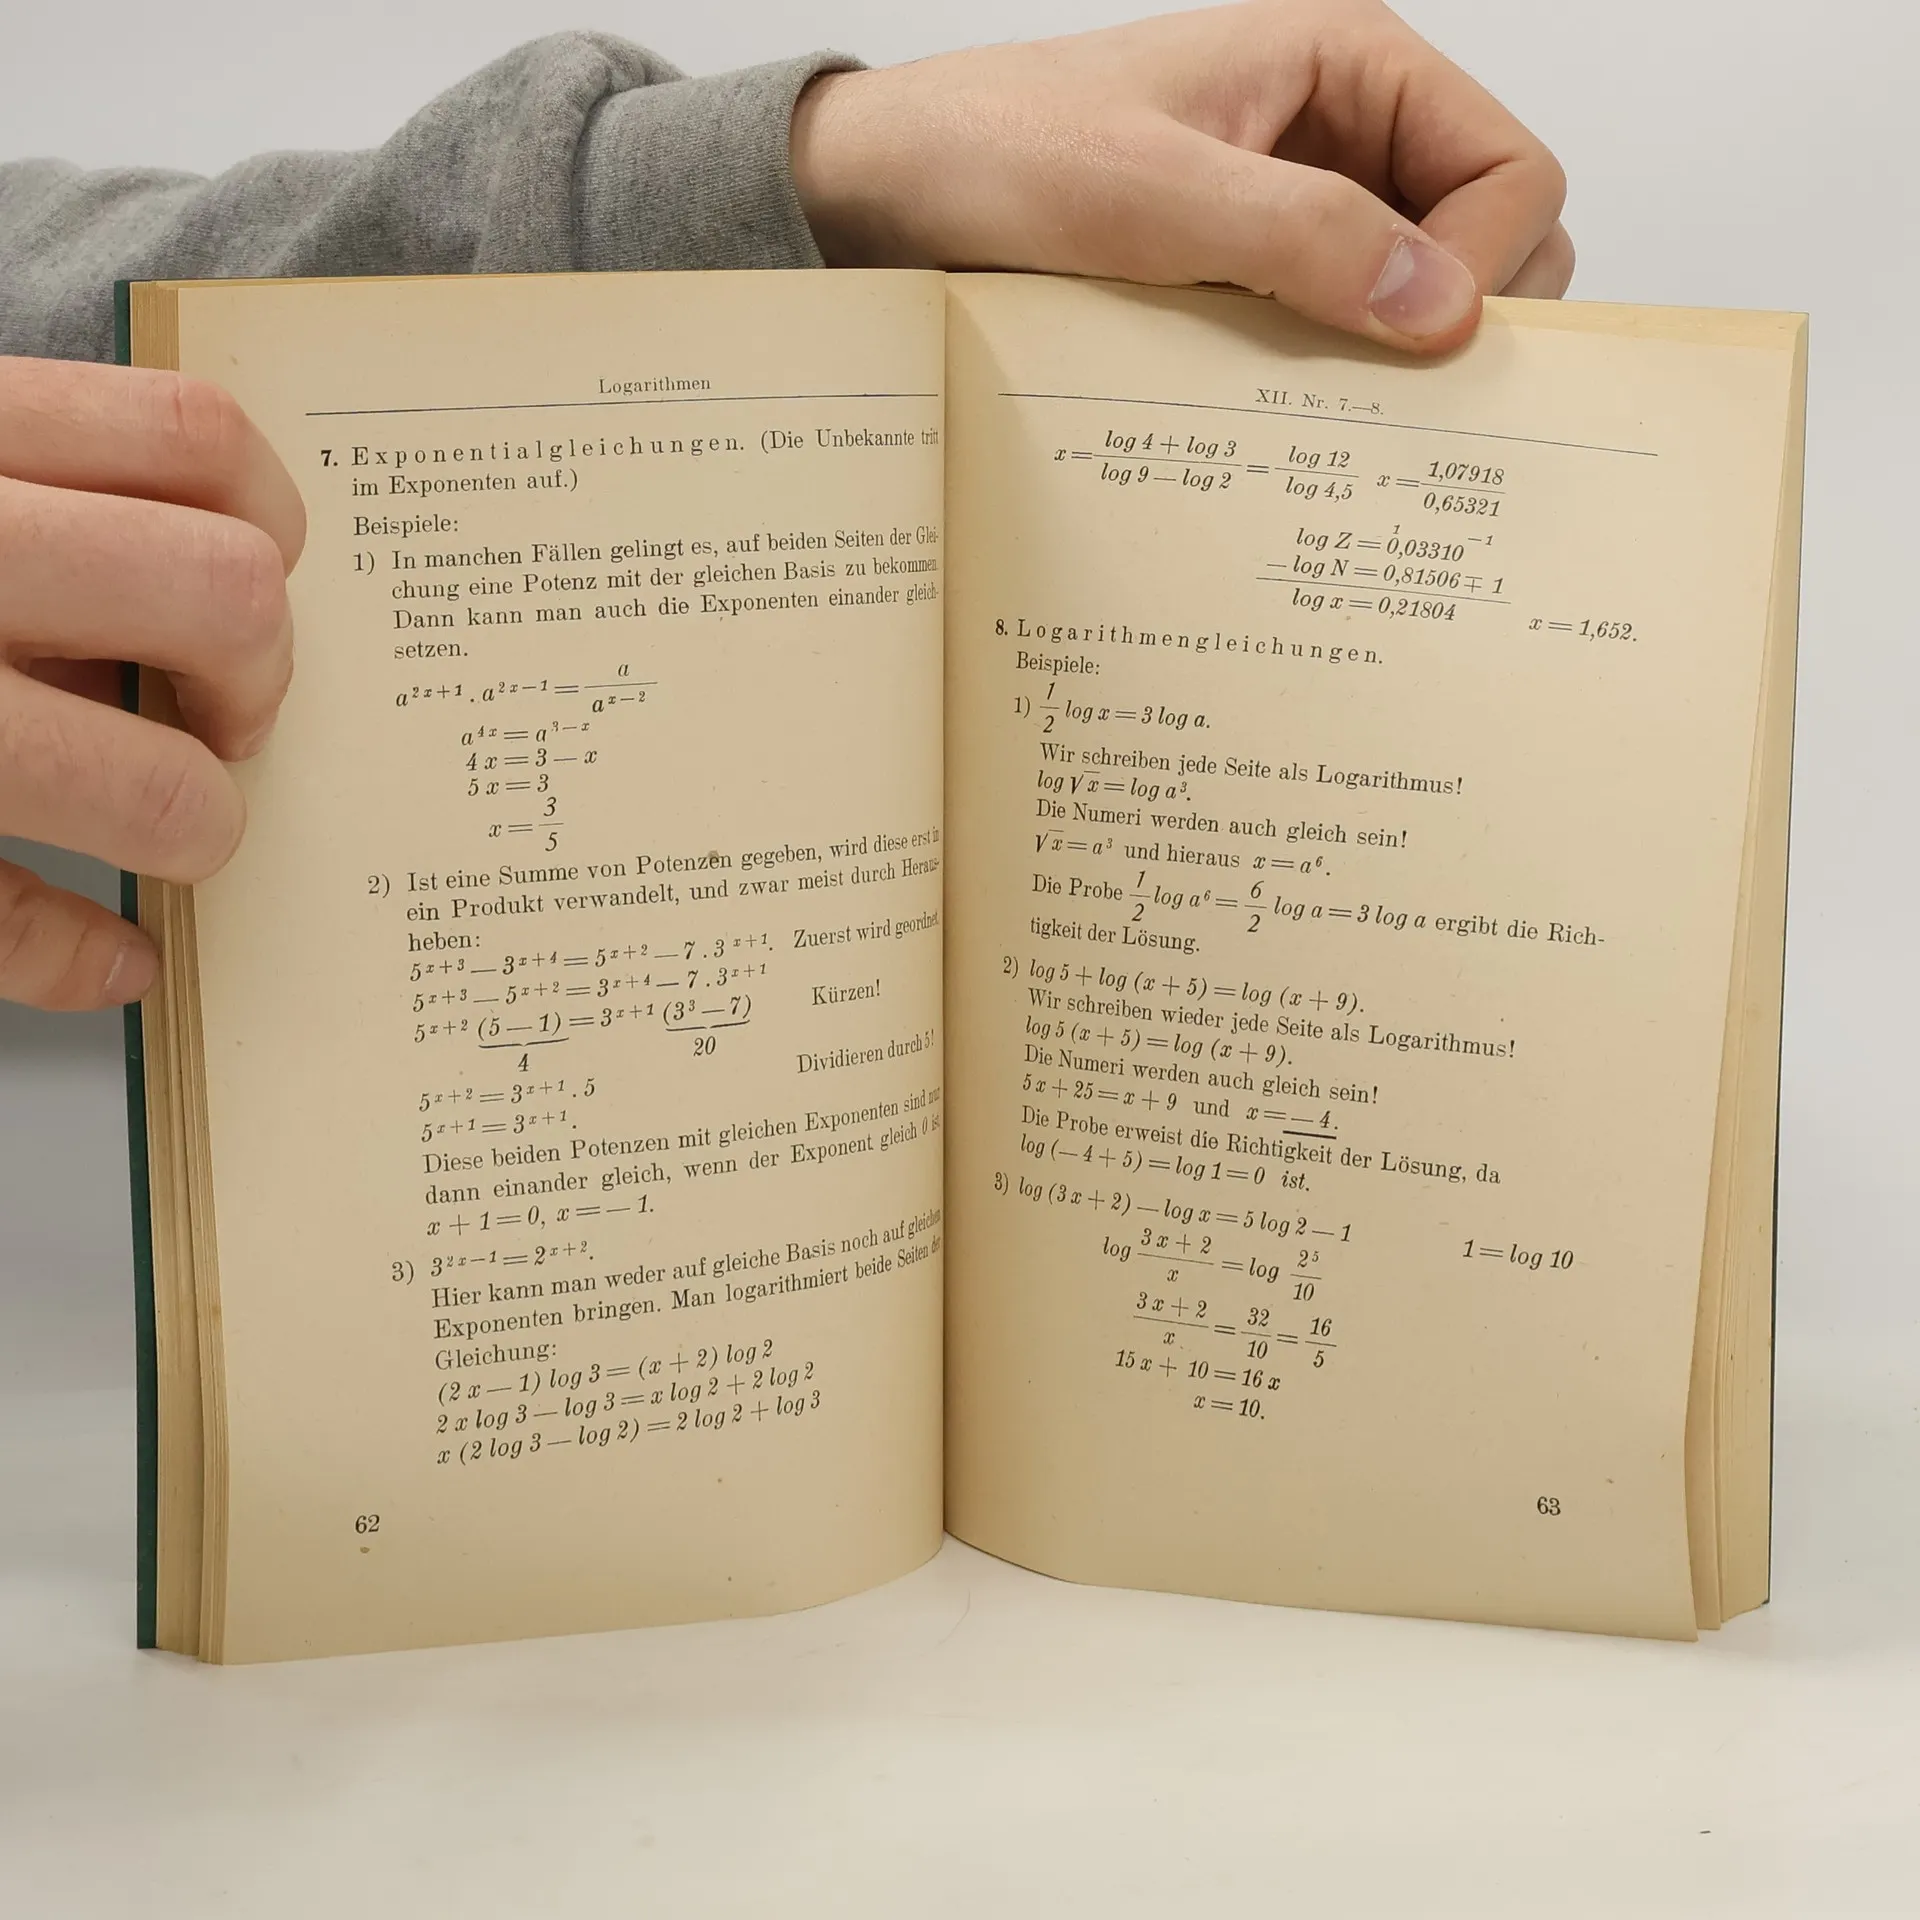 Logarithmen
7. Exponentialgleichungen. (Die Unbekannte tritt
im Exponenten auf.)
Beispiele:
1) In manchen Fällen gelingt es, auf beiden Seiten der Glei-
chung eine Potenz mit der gleichen Basis zu bekommen.
Dann kann man auch die Exponenten einander gleich-
setzen.
a^{2x+1} . a^{2x−1} = a / a^{x−2}
a^{4x} = a^{3−x}
4 x = 3 — x
5 x = 3
x = 3/5
2) Ist eine Summe von Potenzen gegeben, wird diese erst in
ein Produkt verwandelt, und zwar meist durch Heraus-
heben:
5^{x+3} — 3^{x+4} = 5^{x+2} — 7 . 3^{x+1}. Zuerst wird geordnet
5^{x+3} — 5^{x+2} = 3^{x+4} — 7 . 3^{x+1}
5^{x+2} (5 — 1) = 3^{x+1} (3³ — 7) Kürzen!
4 20
5^{x+2} = 3^{x+1} . 5 Dividieren durch 5!
5^{x+1} = 3^{x+1}.
Diese beiden Potenzen mit gleichen Exponenten sind nur
dann einander gleich, wenn der Exponent gleich 0 ist
x + 1 = 0, x = — 1.
3) 3^{2x−1} = 2^{x+2}.
Hier kann man weder auf gleiche Basis noch auf gleichen
Exponenten bringen. Man logarithmiert beide Seiten der
Gleichung:
(2 x — 1) log 3 = (x + 2) log 2
2 x log 3 — log 3 = x log 2 + 2 log 2
x (2 log 3 — log 2) = 2 log 2 + log 3
62
XII. Nr. 7.—8.
x = (log 4 + log 3) / (log 9 — log 2) = log 12 / log 4,5 x = 1,07918 / 0,65321
1
log Z = 0,03310 ^{−1}
— log N = 0,81506 ∓ 1
log x = 0,21804
x = 1,652.
8. Logarithmengleichungen.
Beispiele:
1) 1/2 log x = 3 log a.
Wir schreiben jede Seite als Logarithmus!
log √x = log a³.
Die Numeri werden auch gleich sein!
√x = a³ und hieraus x = a⁶.
Die Probe 1/2 log a⁶ = 6/2 log a = 3 log a ergibt die Rich-
tigkeit der Lösung.
2) log 5 + log (x + 5) = log (x + 9).
Wir schreiben wieder jede Seite als Logarithmus!
log 5 (x + 5) = log (x + 9).
Die Numeri werden auch gleich sein!
5 x + 25 = x + 9 und x = — 4.
Die Probe erweist die Richtigkeit der Lösung, da
log (— 4 + 5) = log 1 = 0 ist.
3) log (3 x + 2) — log x = 5 log 2 — 1
log (3 x + 2)/x = log 2⁵/10 1 = log 10
(3 x + 2)/x = 32/10 = 16/5
15 x + 10 = 16 x
x = 10.
63